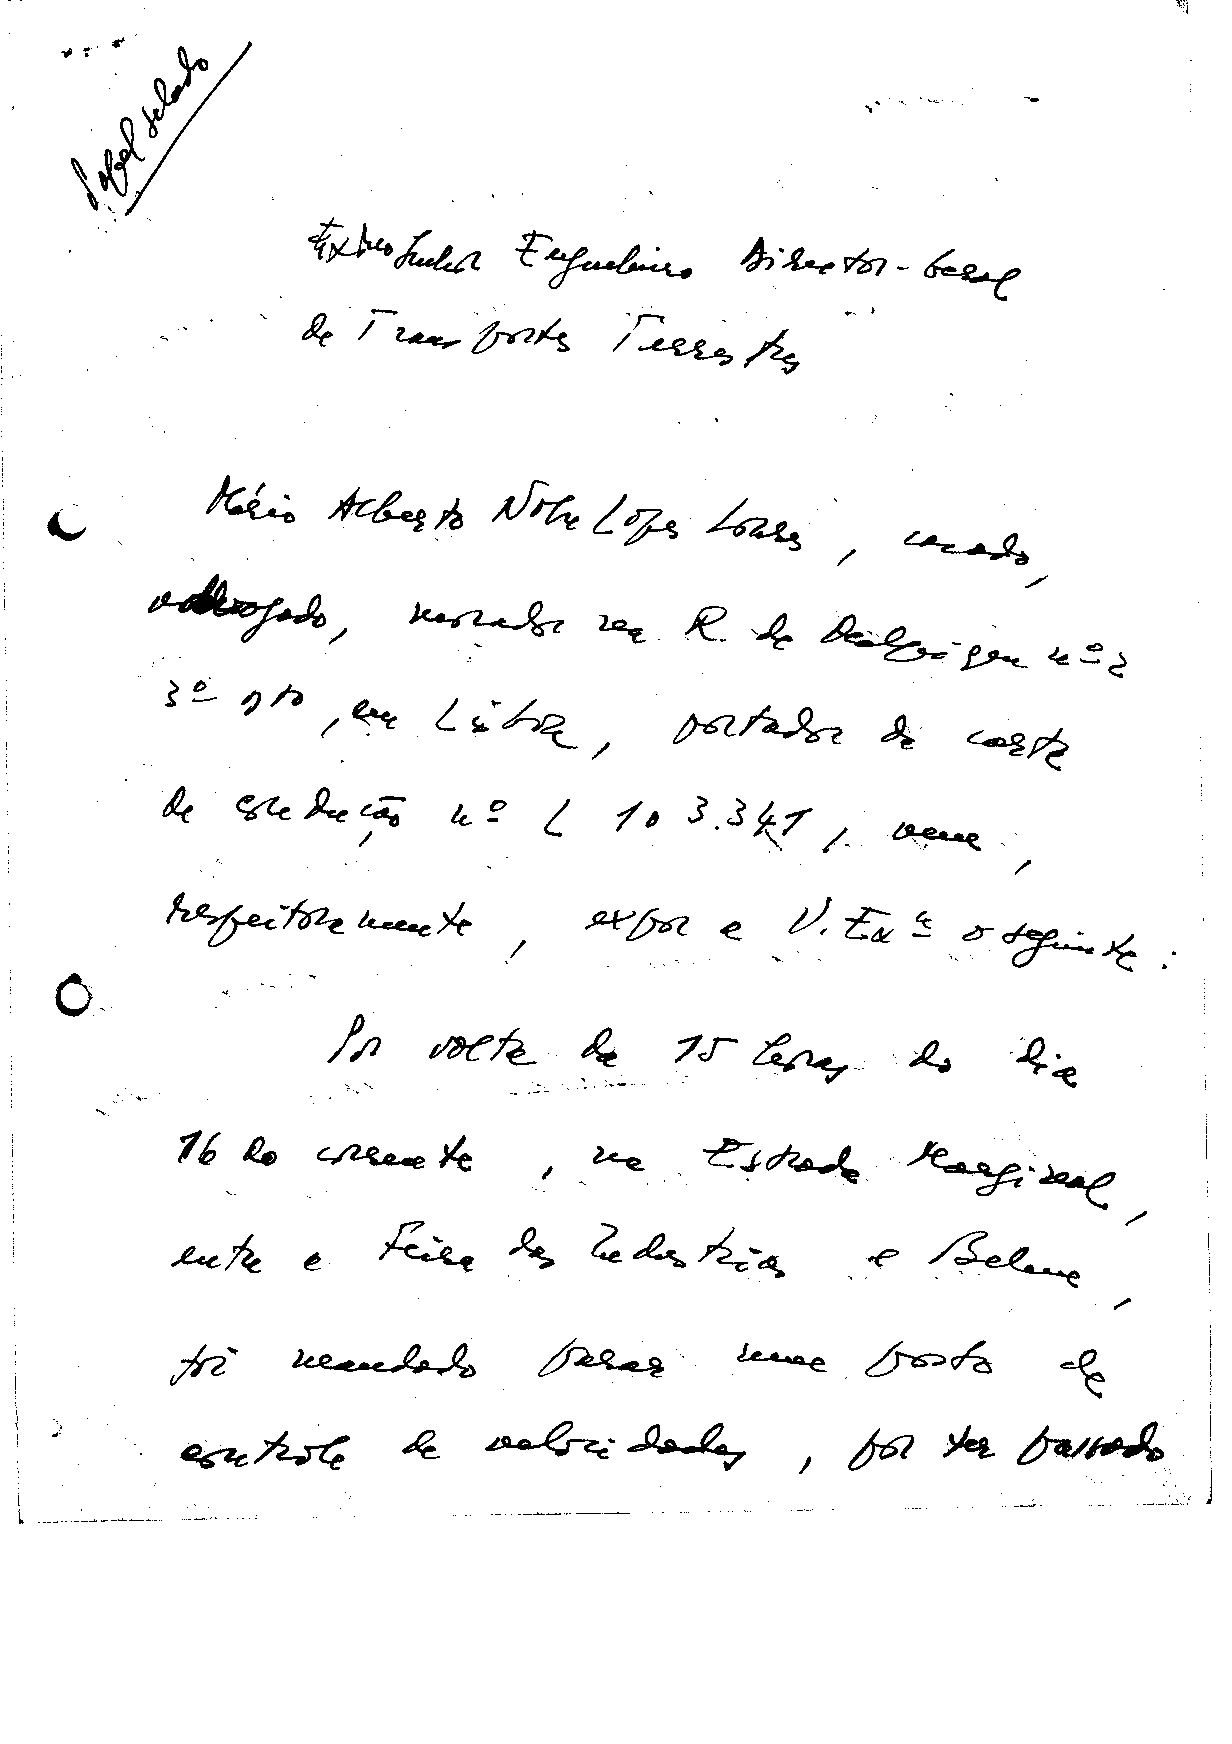 Papel selado
Exmo Senhor Engenheiro Director-Geral
de Transportes Terrestres
Mário Alberto Nobre Lopes Soares, casado,
advogado, morador na R. de nº 2
3º dto, em Lisboa, portador da carta
de condução nº L 103.341, vem,
respeitosamente, expor a V. Exª o seguinte:
Por volta da 15 horas do dia
16 do corrente, na Estrada Marginal,
entre a Feira das Industrias e Belem,
foi mandado parar num posto de
controle de velocidades, por ter passado